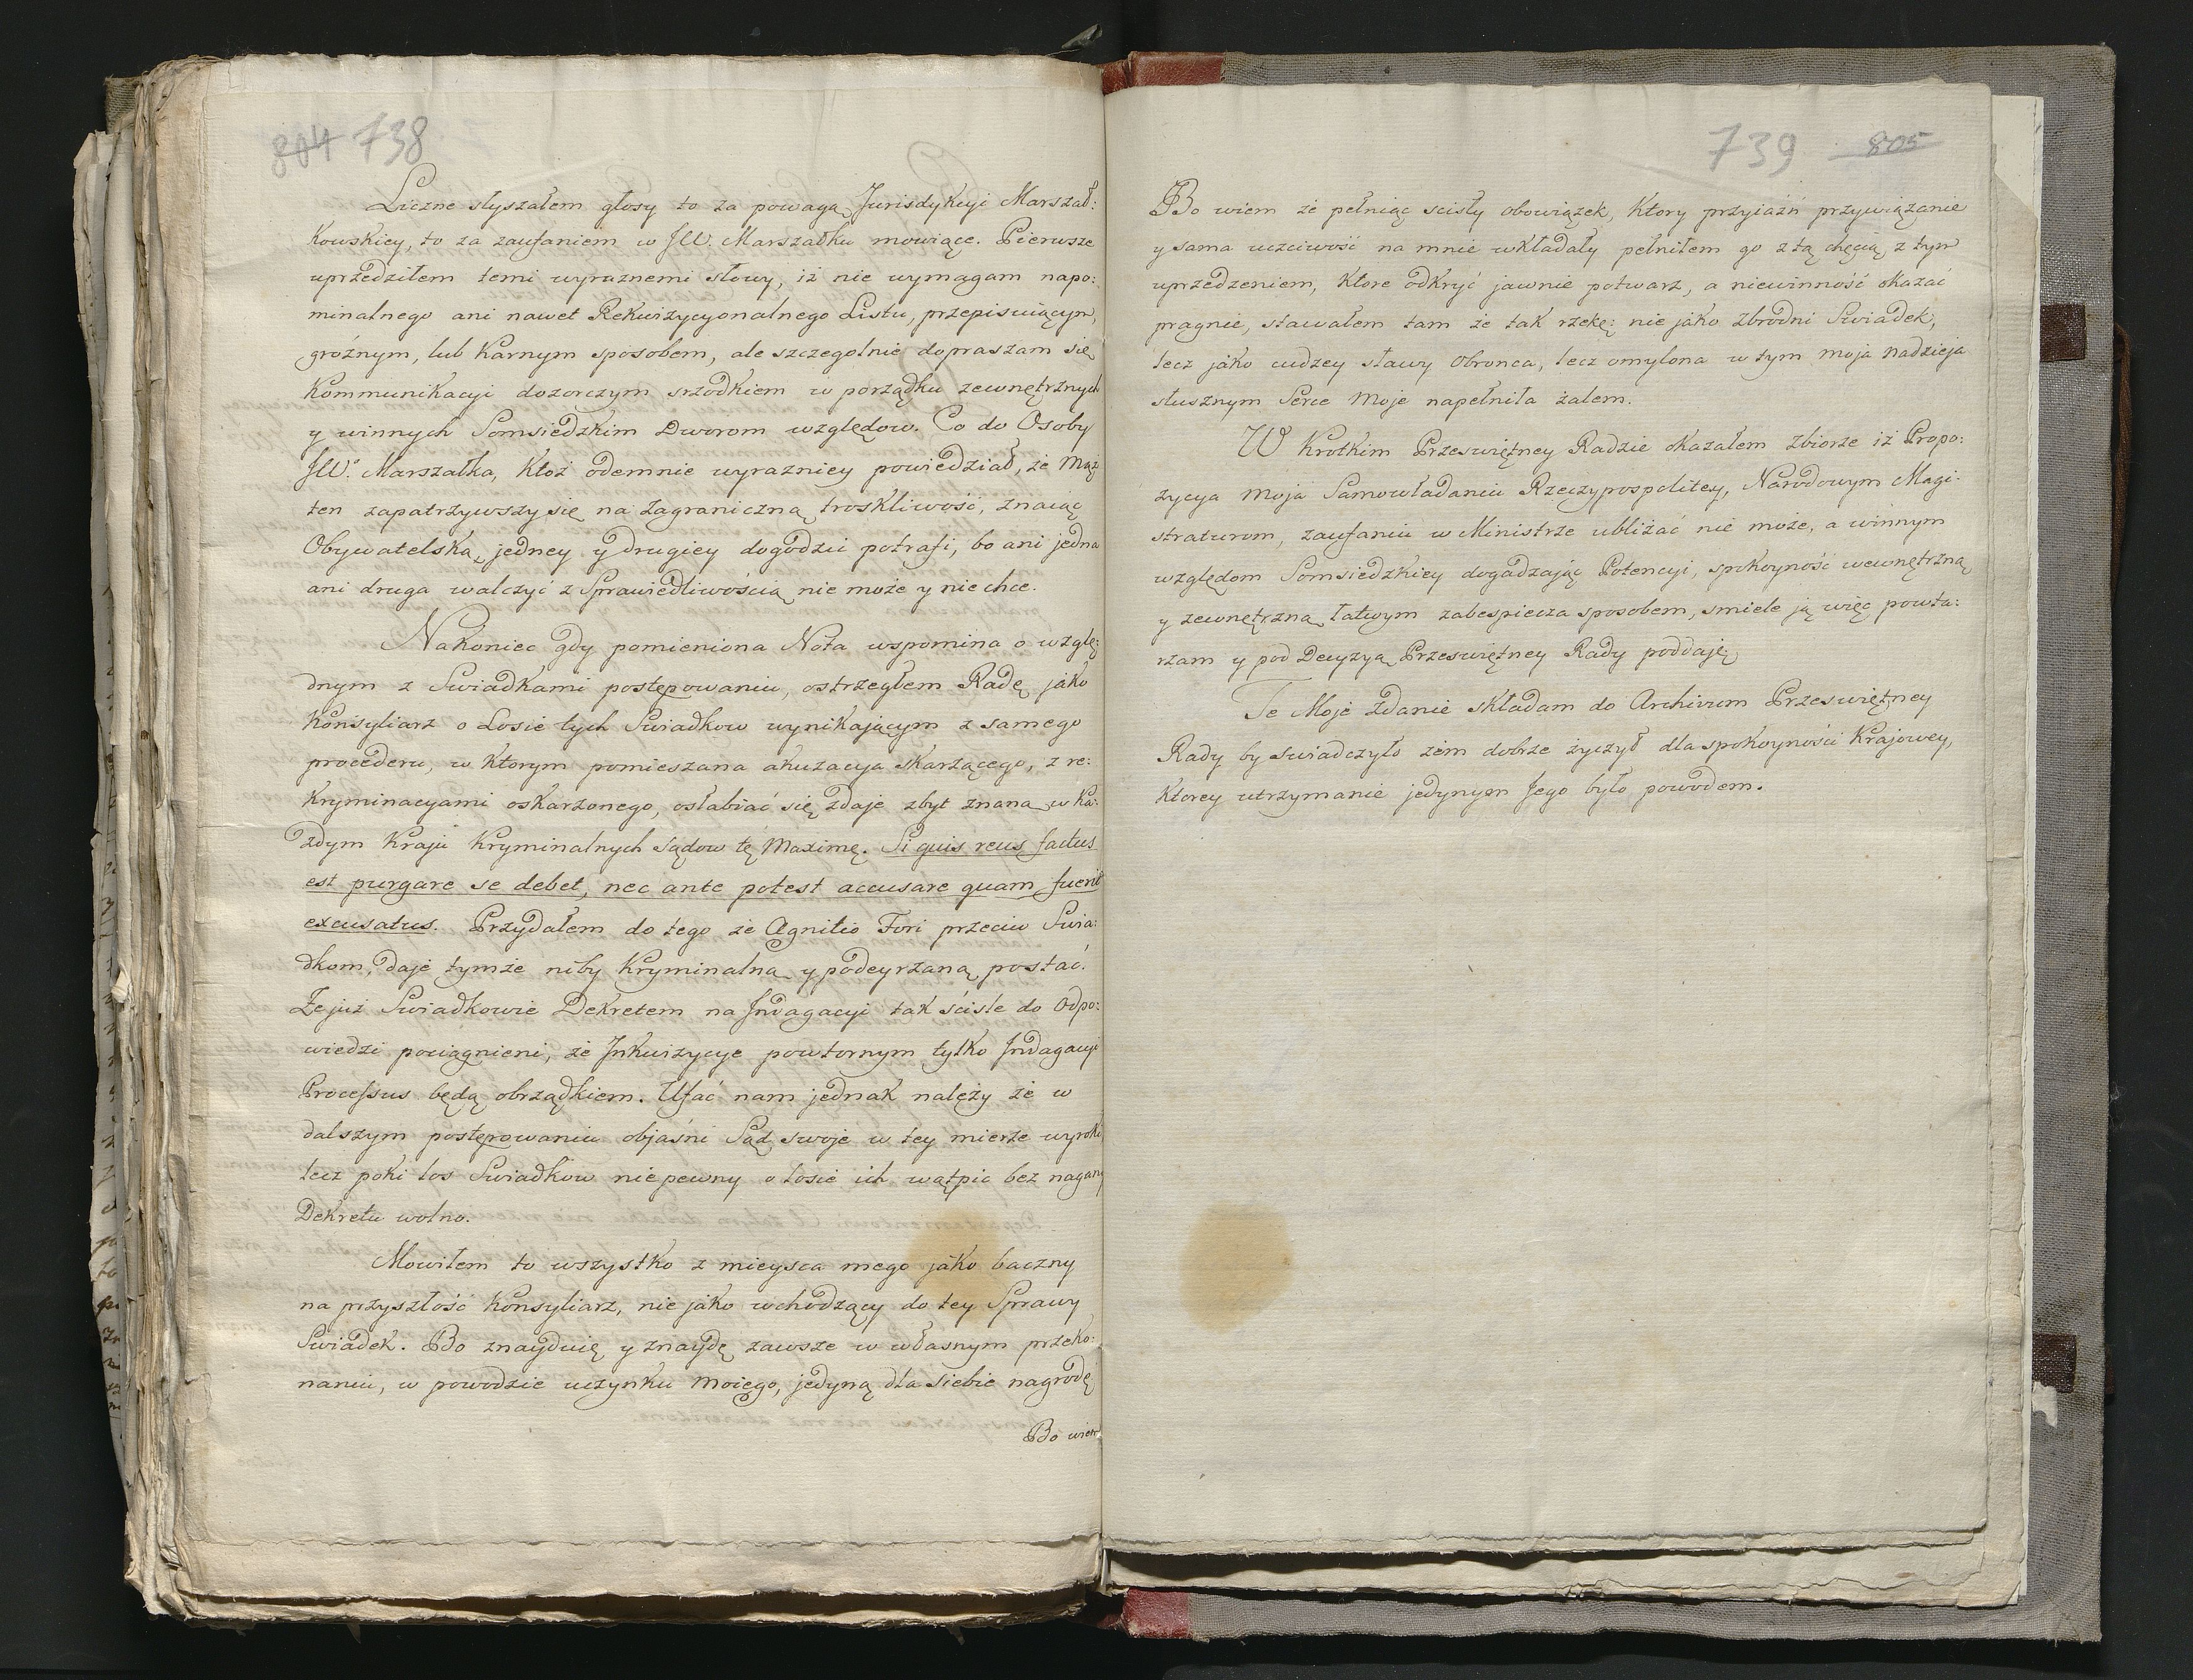 804 738
Liczne słyszałem głosy to za powagą Jurisdykcyi Marszał:
kowskiey, to za zaufaniem w JW. Marszałku mowiące. Pierwsze
uprzedziłem temi wyraznemi słowy, iż nie wymagam napo:
minalnego ani nawet Rekwizycyonalnego Listu, przepisuiącym,
groźnym, lub karnym sposobem, ale szczegolnie dopraszam się
kommunikacyi dozorczym srzodkiem w porządku zewnętrznych
y winnych Somsiedzkim Dworom względow. Co do Osoby
JW. Marszałka, ktoż odemnie wyrazniey powiedział, że Mąż
ten zapatrzywszy się na zagraniczną troskliwość, znaiąc
Obywatelską, jedney y drugiey dogodzić potrafi, bo ani jedna
ani druga walczyć z Sprawiedliwością nie może y nie chce.
Nakoniec gdy pomieniona Nota wspomina o wzglę:
dnym z Swiadkami postępowaniu, ostrzegłem Radę jako
Konsyliarz o Losie tych Swiadkow wynikającym z samego
procederu, w ktorym pomieszana akuzacya skarżącego, z re:
kryminacyami oskarzonego, osłabiać się zdaje zbyt znaną w ka:
żdym Kraju Kryminalnych Sądow tę Maximę. Si quis reus factus
est purgare se debet, nec ante potest accusare quam fuerit
excusatus. Przydałem do tego że Agnitio Fori przeciw Swia:
dkom, daje tymże niby Kryminalną y podeyrzaną postać.
Że już Swiadkowie Dekretem na Indagacyi tak ściśle do Odpo:
wiedzi pociągnieni, że Inkwizycye powtornym tylko Indagacyi
Processus będą obrządkiem. Ufać nam jednak należy że w
dalszym postępowaniu objaśni Sąd swoje w tey mierze wyroki
lecz poki los Swiadkow niepewny o losie ich wątpić bez nagany
Dekretu wolno.
Mowiłem to wszystko z mieysca mego jako baczny
na przyszłość Konsyliarz, nie jako wchodzący do tey Sprawy
Swiadek. Bo znayduię y znaydę zawsze w własnym przeko:
naniu, w powodzie uczynku moiego, jedyną dla siebie nagrodę
Bo wiem
739 805
Bo wiem że pełniąc scisły obowiązek, ktory przyiaźń przywiązanie
y sama uczciwość na mnie wkładały pełniłem go z tą chęcią z tym
uprzedzeniem, ktore odkryć jawnie potwarz, a niewinność okazać
pragnie, stawałem tam że tak rzekę: nie jako zbrodni Swiadek,
lecz jako cudzey sławy Obronca, lecz omylona w tym moja nadzieja
słusznym Serce Moje napełniła żalem.
W Krotkim Przeswiętney Radzie okazałem zbiorze iż Propo:
zycya moja Samowładaniu Rzeczypospolitey, Narodowym Magi:
straturom, zaufaniu w Ministrze ubliżać nie może, a winnym
względom Somsiedzkiey dogadzając Potencyi, spokoyność wewnętrzną
y zewnętrzną łatwym zabespiecza sposobem, smiele ją więc powta:
rzam y pod Decyzyą Przeswiętney Rady poddaję.
Te Moje zdanie składam do Archivum Przeswiętney
Rady by swiadczyło żem dobrze życzył dla spokoyności Krajowey,
ktorey utrzymanie jedynym Jego było powodem.